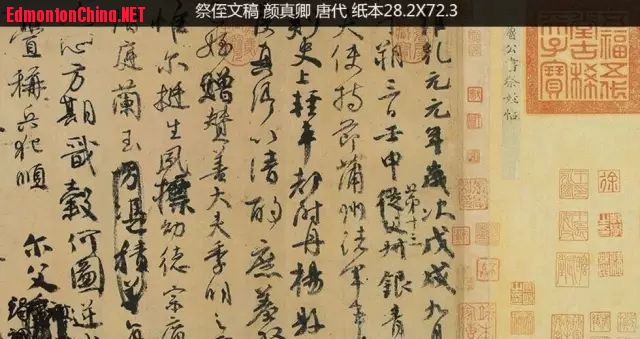 EdmontonChina.NET
祭侄文稿 颜真卿 唐代 纸本28.2X72.3
魯公書祭姪帖
乾元元年歲次戊戌九月
朔三日壬申第十三從父銀青
夫使持節蒲州諸軍事
刺史上輕車都尉丹楊縣
侯真卿以清酌庶羞祭
姪贈贊善大夫季明之
惟爾挺生夙標幼德宗廟
階庭蘭玉方憑積善
心方期戩穀何圖逆
釁稱兵犯順爾父竭